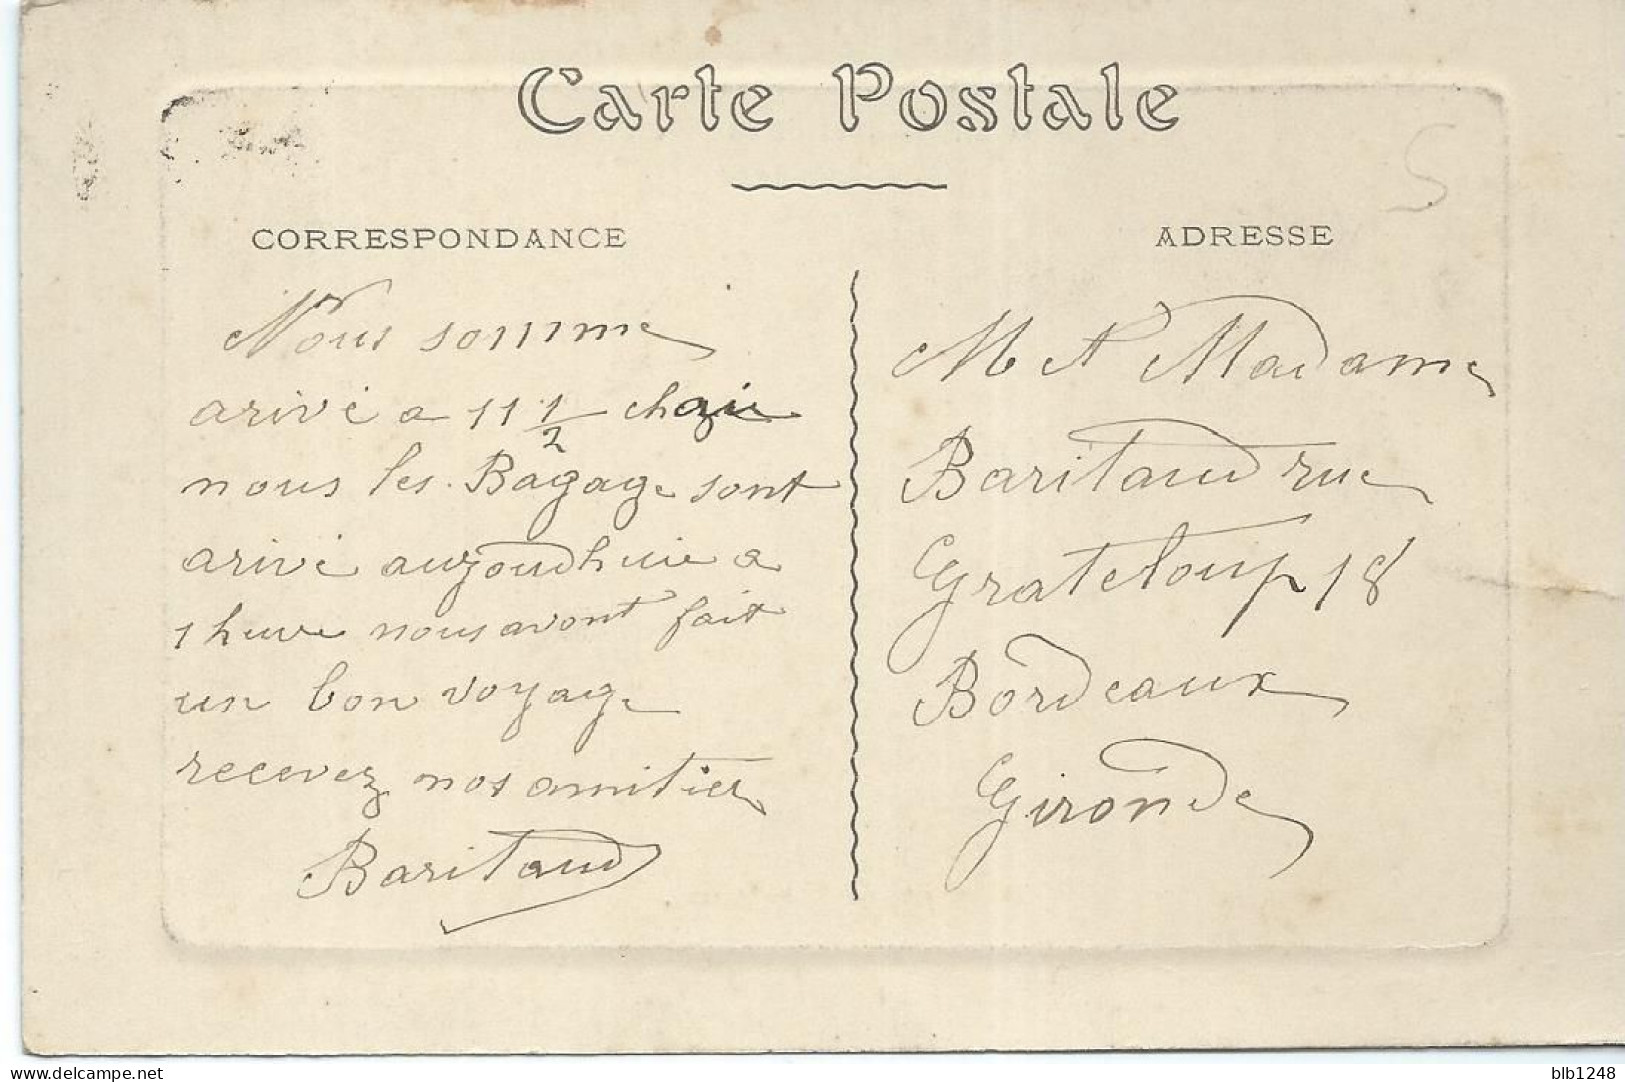 Carte Postale
CORRESPONDANCE
Nous somme
arivé a 11 1/2 chezie
nous les Bagage sont
arivé aujourdhuie a
1 heure nous avont fait
un bon voyage
recevez nos amitier
Baritaud
ADRESSE
M et Madame
Baritaud rue
Grateloup 18
Bordeaux
Gironde
5
www.delcampe.net
blb1248